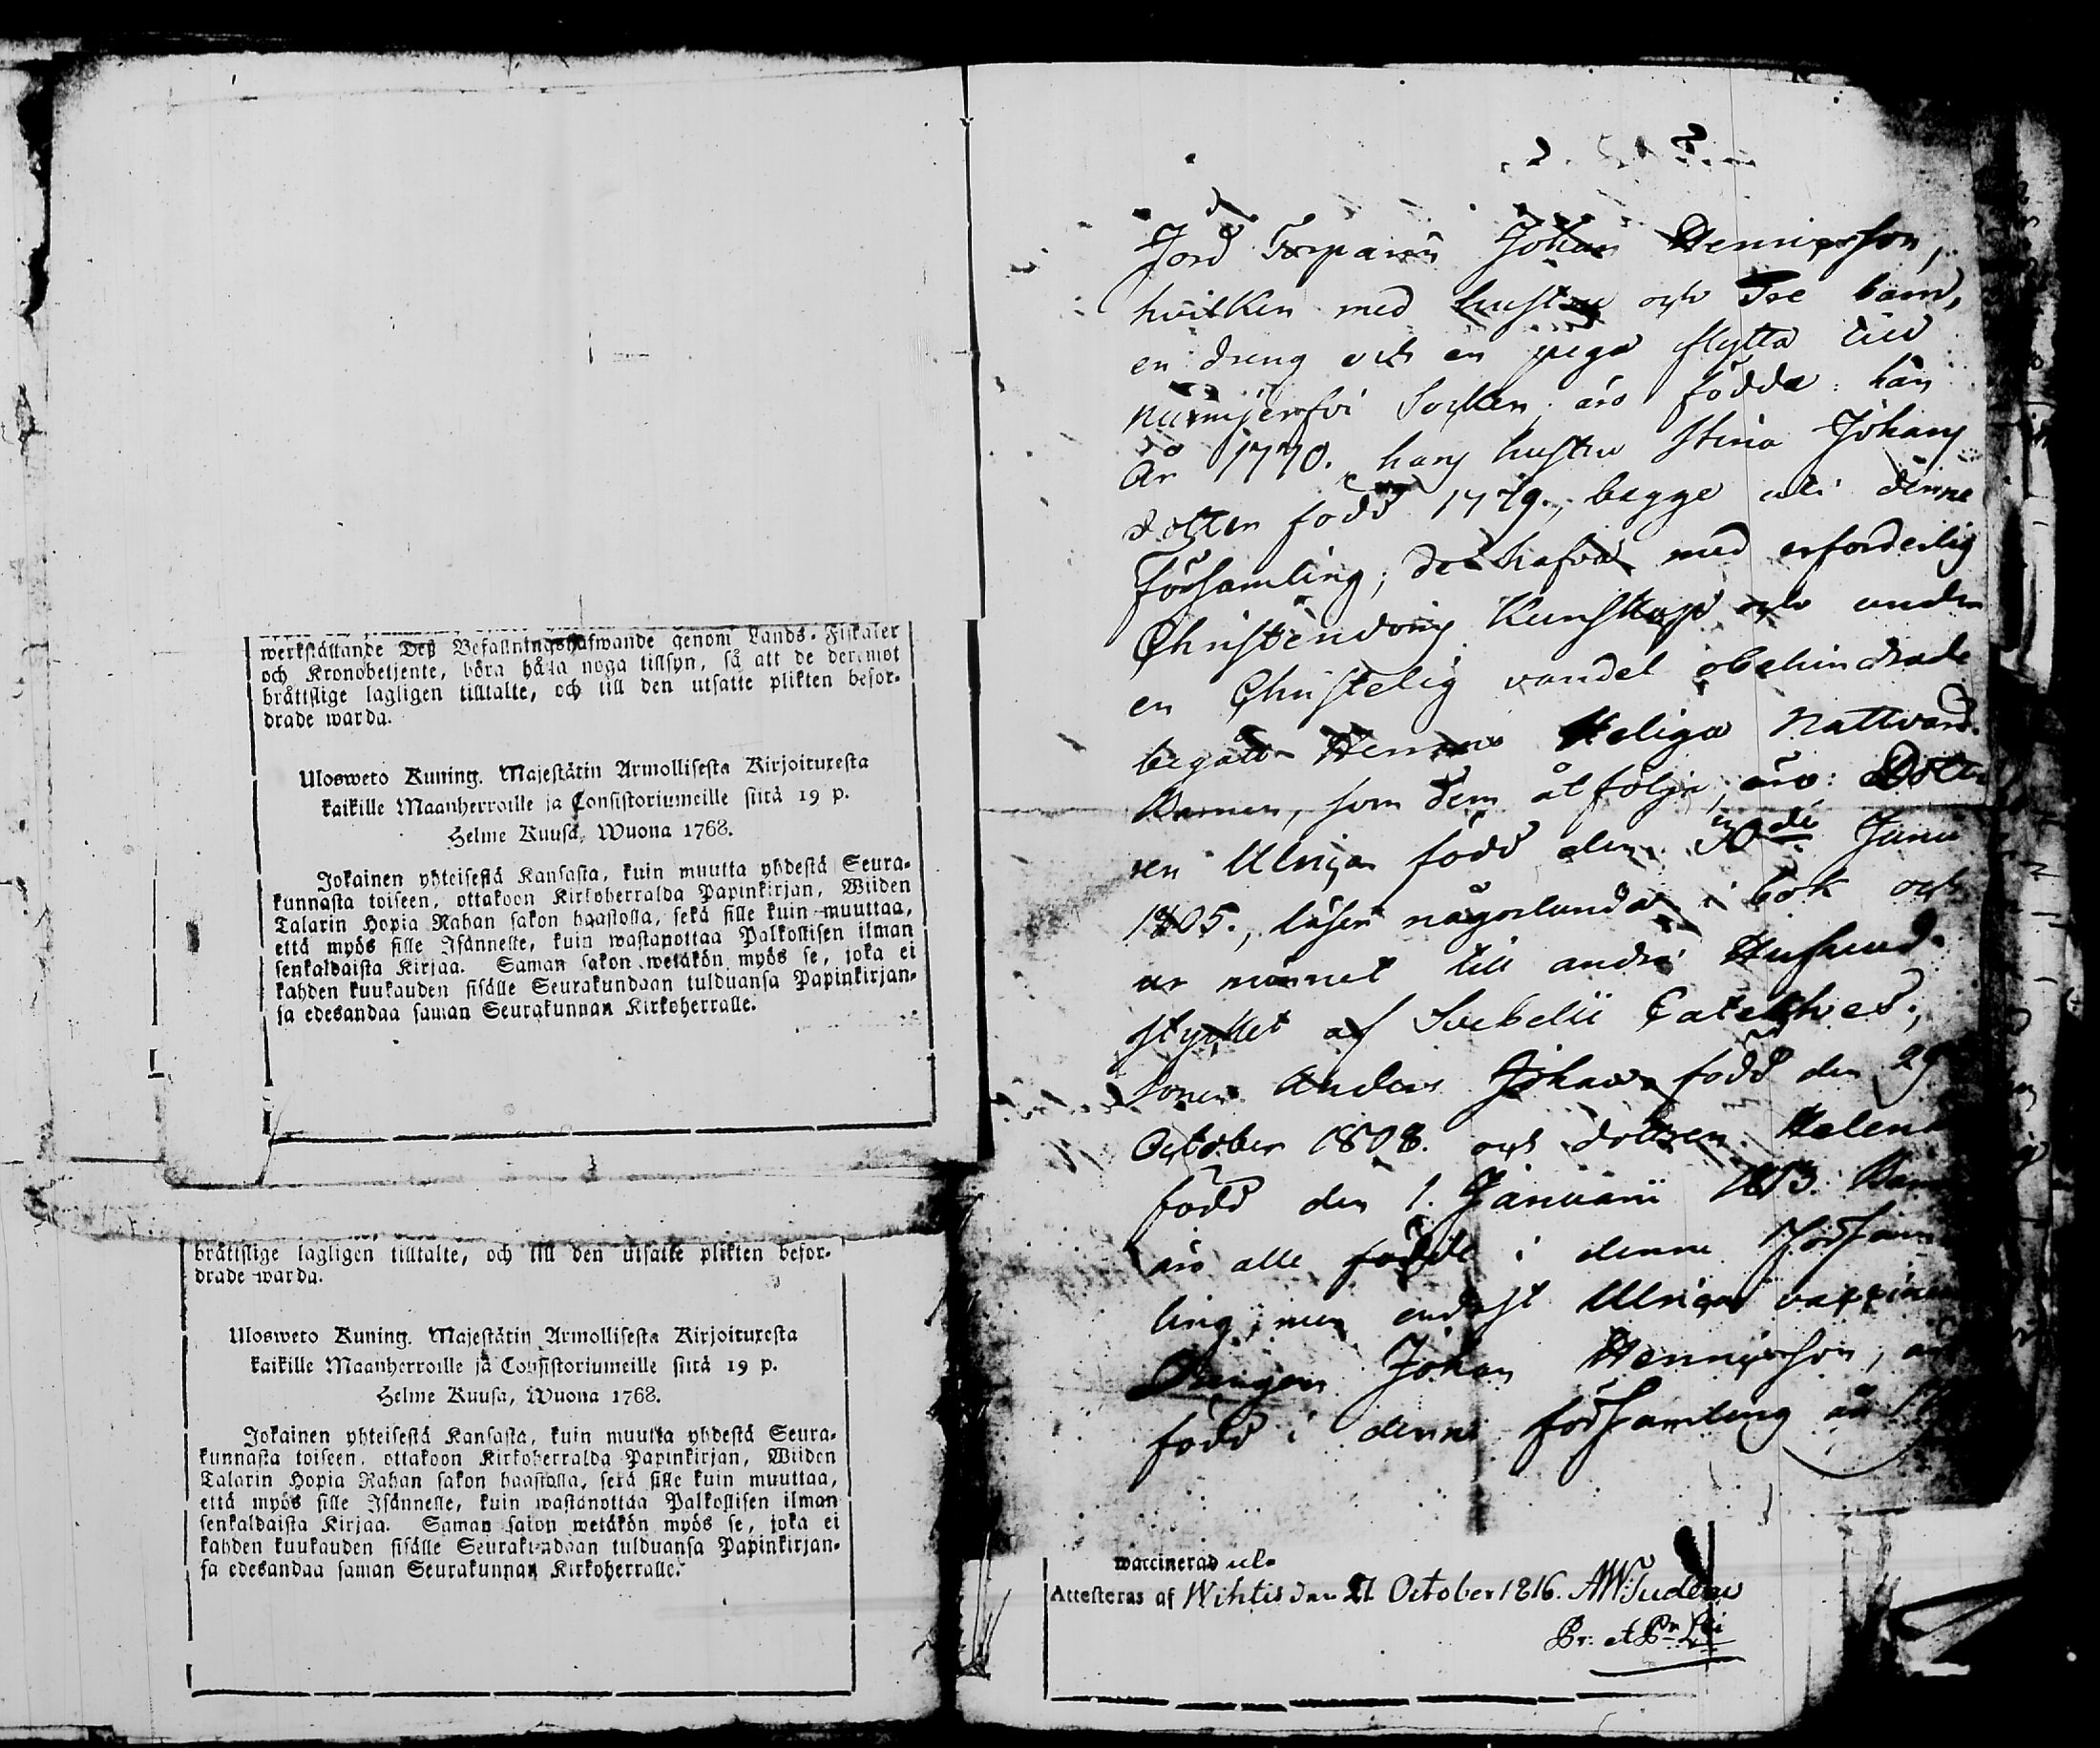 werkställande Deß Befallningshafwande genom Lands-Fiskaler
och Kronobetjente, böra hålla noga tillsyn, så att de deremot
bråttslige lagligen tilltalte, och till den utsatte plikten befor-
drade warda.
Ulosweto Kuning. Majestätin Armollisesta Kirjoituxesta
kaikille Maanherroille ja Consistoriumeille siitä 19 p.
Helme Kuusa, Wuona 1768.
Jokainen yhteisestä Kansasta, kuin muutta yhdestä Seura-
kunnasta toiseen, ottakoon Kirkoherralda Papinkirjan, Wiiden
Talarin Hopia Rahan sakon haastolla, sekä sille kuin muuttaa,
että myös sille Isännelle, kuin wastanottaa Palkollisen ilman
senkaldaista Kirjaa. Saman sakon wetäkön myös se, joka ei
kahden kuukauden sisälle Seurakundaan tulduansa Papinkirjan-
sa edesandaa saman Seurakunnan Kirkoherralle.
bråttslige lagligen tilltalte, och till den utsatte plikten befor-
drade warda.
Ulosweto Kuning. Majestätin Armollisesta Kirjoituxesta
kaikille Maanherroille ja Consistoriumeille siitä 19 p.
Helme Kuusa, Wuona 1768.
Jokainen yhteisestä Kansasta, kuin muutta yhdestä Seura-
kunnasta toiseen, ottakoon Kirkoherralda Papinkirjan, Wiiden
Talarin Hopia Rahan sakon haastolla, sekä sille kuin muuttaa,
että myös sille Isännelle, kuin wastanottaa Palkollisen ilman
senkaldaista Kirjaa. Saman sakon wetäkön myös se, joka ei
kahden kuukauden sisälle Seurakundaan tulduansa Papinkirjan-
sa edesandaa saman Seurakunnan Kirkoherralle.
Jord Torparen Johan Henricsson,
hvilken med hustru och Tre barn,
en dreng och en piga flytta till
Nurmijerfvi Socken, äro födde: han
År 1770. hans hustru Stina Johans
dotter född 1779., begge uti denne
Församling; de hafva med erforderlig
Christendoms Kunskap och under
en Christelig vandel obehindrade
begått Herrans Heliga Nattvard.
Barnen, som dem åtfölja, äro: Dott-
ren Ulrica född den 30de Junii
1805., läser någorlunda i bok och
ur minnet till andra Hufvud-
stycket af Svebelii Cateches.,
Sonen Anders Johan född den 29
October 1808. och dottren Helena
född den 1. Januarii 1813. Barnen
äro alle födde i denne Försam
ling, men endast Ulrica vaccine
Drengen Johan Henricsson, är
född i denne församling år
waccinerad ut.
Attesteras af Wihtis den 21 October 1816. AW:
Pr: